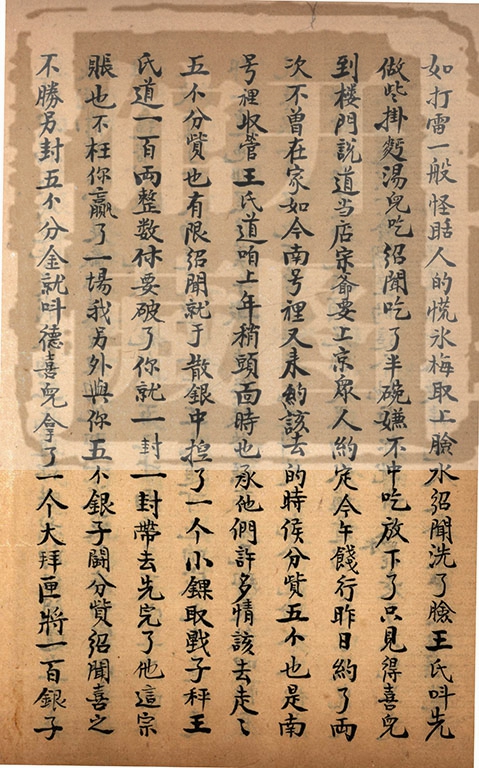 如打雷一般怪聒人的慌冰梅取上臉水紹聞洗了臉王氏呌先
做些掛麪湯兒吃紹聞吃了半碗嫌不中吃放下了只見得喜兒
到楼門說道当店宋爺要上京眾人約定今午餞行昨日約了两
次不曽在家如今南号裡又来約該去的時侯分貲五个也是南
号裡収管王氏道咱上年稍頭面時也承他們許多情該去走〻
五个分貲也有限紹聞就于散銀中揑了一个小錁取戥子秤王
氏道一百両整数休要破了你就一封一封帶去先完了他這宗
賬也不枉你贏了一場我另外與你五个銀子鬪分貲紹聞喜之
不勝另封五个分金就呌德喜兒拿了一个大拜匣將一百銀子